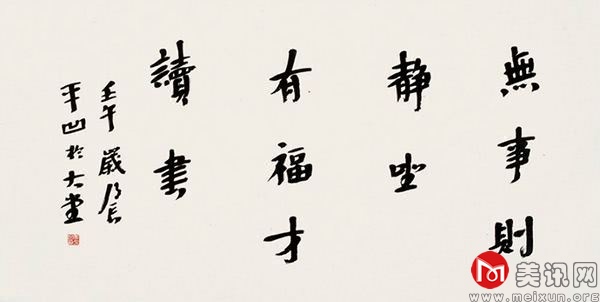 無事則
静坐
有福才
讀書
壬午歲
平凹於大堂
美讯网
www.meixun.org